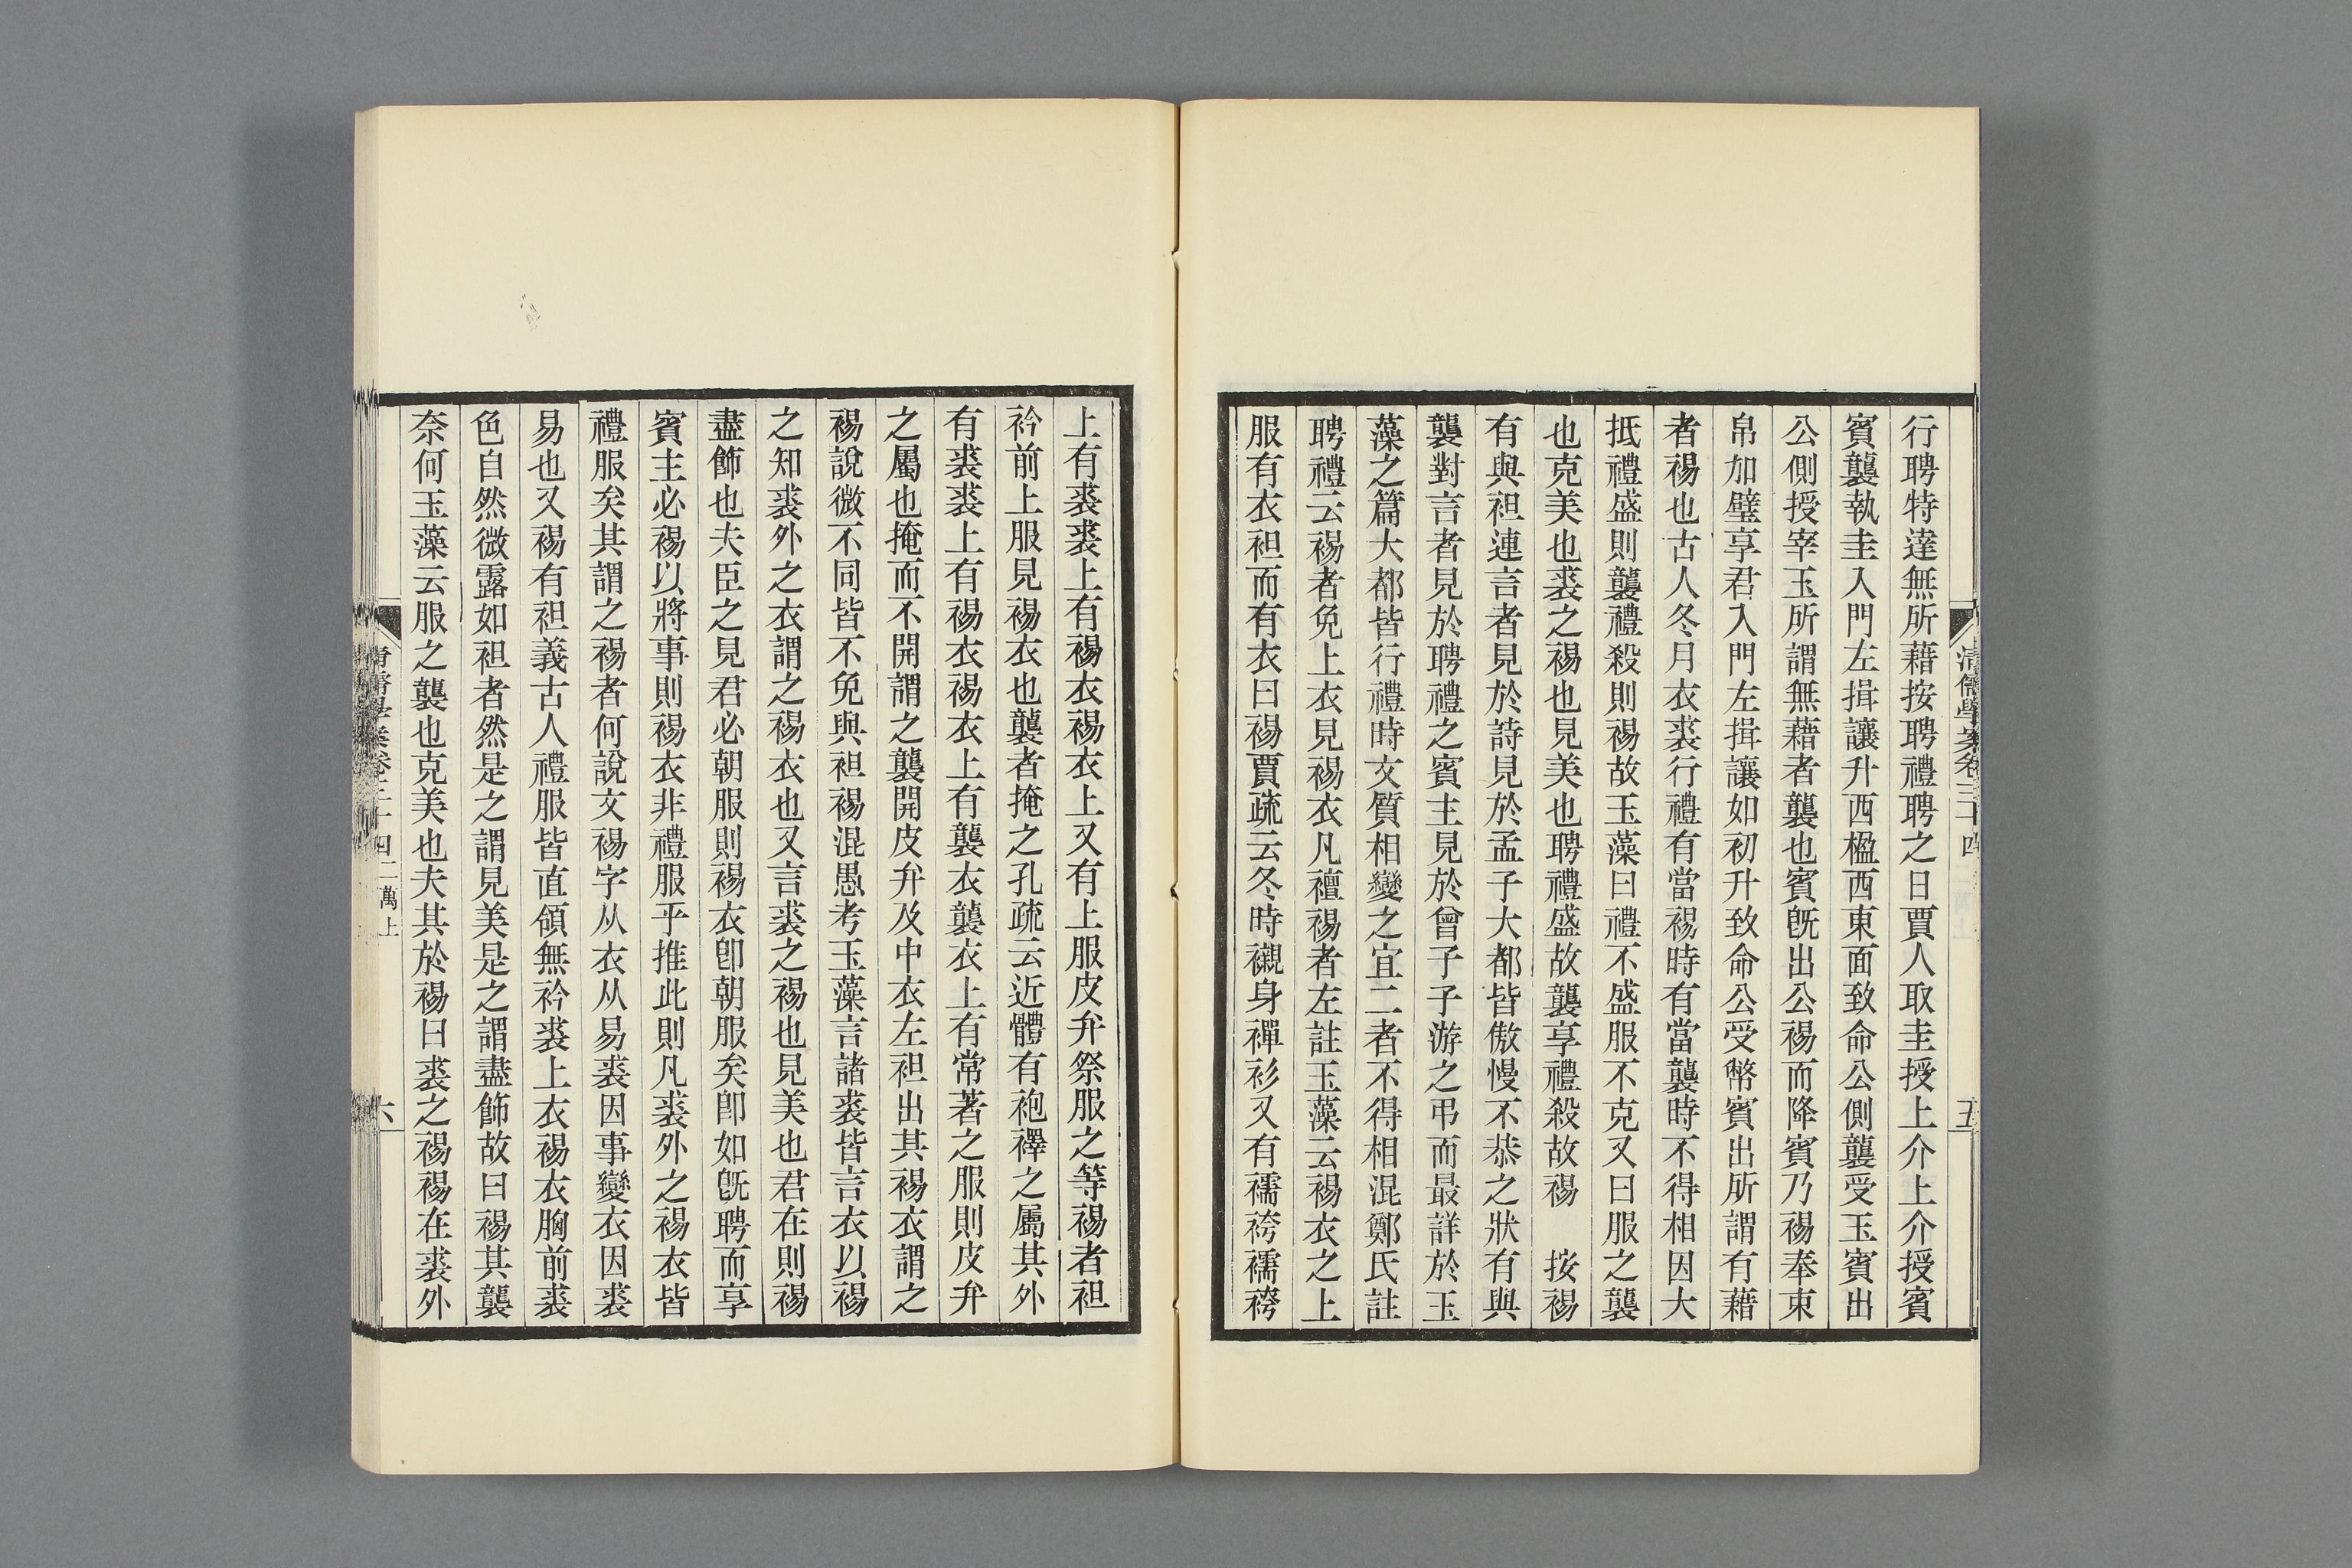 清儒學案卷三十四
五
行聘特達無所藉按聘禮聘之日賈人取圭授上介上介授賓
賓襲執圭入門左揖讓升西楹西東面致命公側襲受玉賓出
公側授宰玉所謂無藉者襲也賓旣出公裼而降賓乃裼奉束
帛加璧享君入門左揖讓如初升致命公受幣賓出所謂有藉
者裼也古人冬月衣裘行禮有當裼時有當襲時不得相因大
抵禮盛則襲禮殺則裼故玉藻曰禮不盛服不克又曰服之襲
也克美也裘之裼也見美也聘禮盛故襲享禮殺故裼　按裼
有與袒連言者見於詩見於孟子大都皆傲慢不恭之狀有與
襲對言者見於聘禮之賓主見於曾子子游之弔而最詳於玉
藻之篇大都皆行禮時文質相變之宜二者不得相混鄭氏註
聘禮云裼者免上衣見裼衣凡襢裼者左註玉藻云裼衣之上
服有衣袒而有衣曰裼賈疏云冬時襯身襌衫又有襦袴襦袴
上有裘裘上有裼衣裼衣上又有上服皮弁祭服之等裼者袒
衿前上服見裼衣也襲者掩之孔疏云近體有袍襗之屬其外
有裘裘上有裼衣裼衣上有襲衣襲衣上有常著之服則皮弁
之屬也掩而不開謂之襲開皮弁及中衣左袒出其裼衣謂之
裼說微不同皆不免與袒裼混愚考玉藻言諸裘皆言衣以裼
之知裘外之衣謂之裼衣也又言裘之裼也見美也君在則裼
盡飾也夫臣之見君必朝服則裼衣卽朝服矣卽如旣聘而享
賓主必裼以將事則裼衣非禮服乎推此則凡裘外之裼衣皆
禮服矣其謂之裼者何說文裼字从衣从易裘因事變衣因裘
易也又裼有袒義古人禮服皆直領無衿裘上衣裼衣胸前裘
色自然微露如袒者然是之謂見美是之謂盡飾故曰裼其襲
奈何玉藻云服之襲也克美也夫其於裼曰裘之裼裼在裘外
卷三十四
二萬上
六